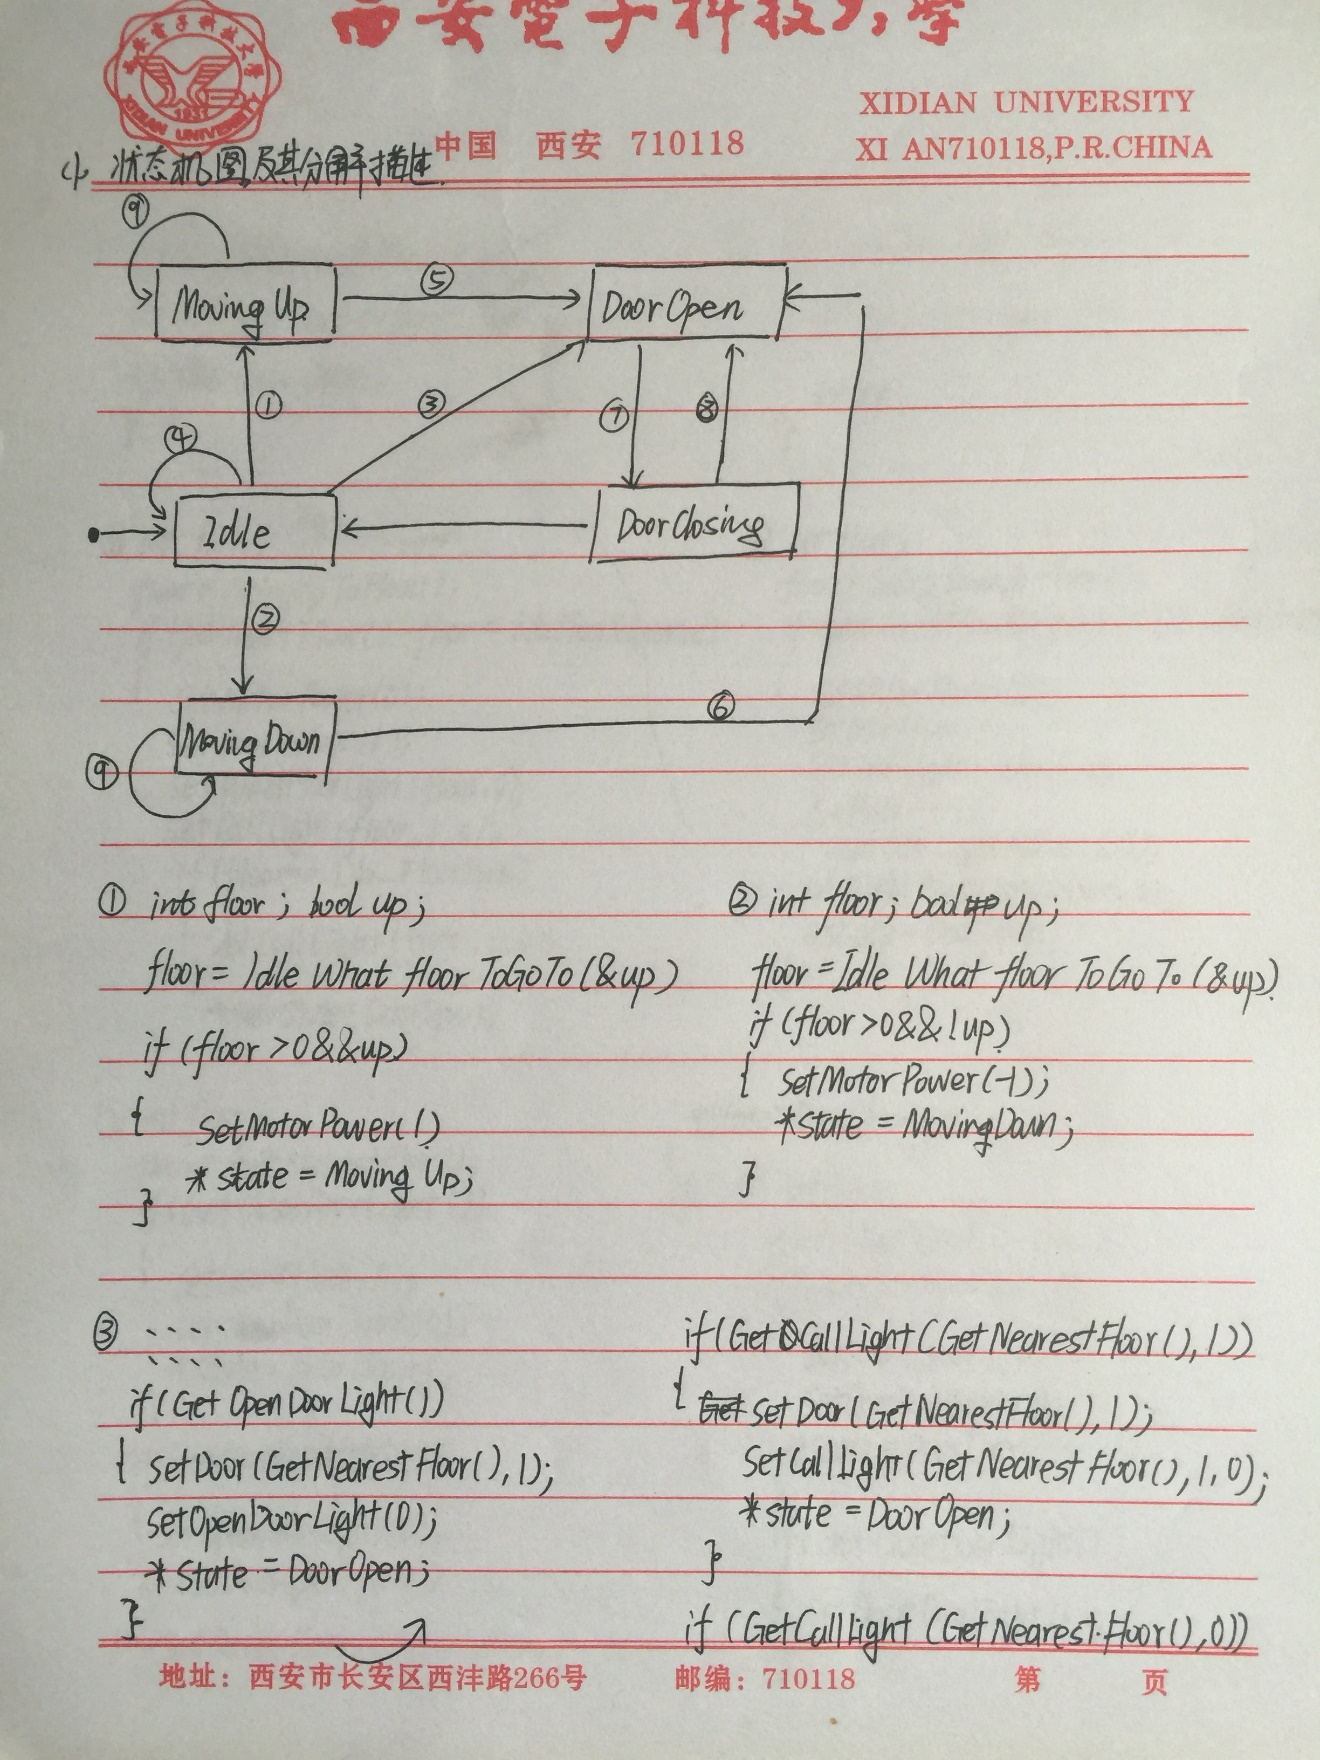 西安電子科技大学
西安電子科技大学
1937
XIDIAN UNIVERSITY
XIDIAN UNIVERSITY
中国 西安 710118
XI AN710118,P.R.CHINA
状态机图及其分解描述.
⑨
⑤
Moving Up
DoorOpen
①
③
⑦
⑧
④
Idle
DoorClosing
②
⑥
Moving Down
⑨
① int floor; bool up;
floor = Idle What floor ToGoTo(&up)
if (floor >0&&up)
{
SetMotorPower(1)
* state = Moving Up;
}
② int floor; bool up;
floor = Idle What floor To Go To (&up)
if (floor >0&&!up)
{ SetMotorPower(-1);
*state = MovingDown;
}
③
if (Get OpenDoorLight())
{ setDoor(GetNearestFloor(),1);
setOpenDoorLight(0);
* state = DoorOpen;
}
if (GetCallLight (GetNearestFloor(),1))
{ Get setDoor(GetNearestFloor(),1);
SetCallLight(GetNearestFloor(),1,0);
*state = DoorOpen;
}
if (GetCallLight (GetNearestFloor(),0))
地址：西安市长安区西沣路266号 邮编：710118 第 页